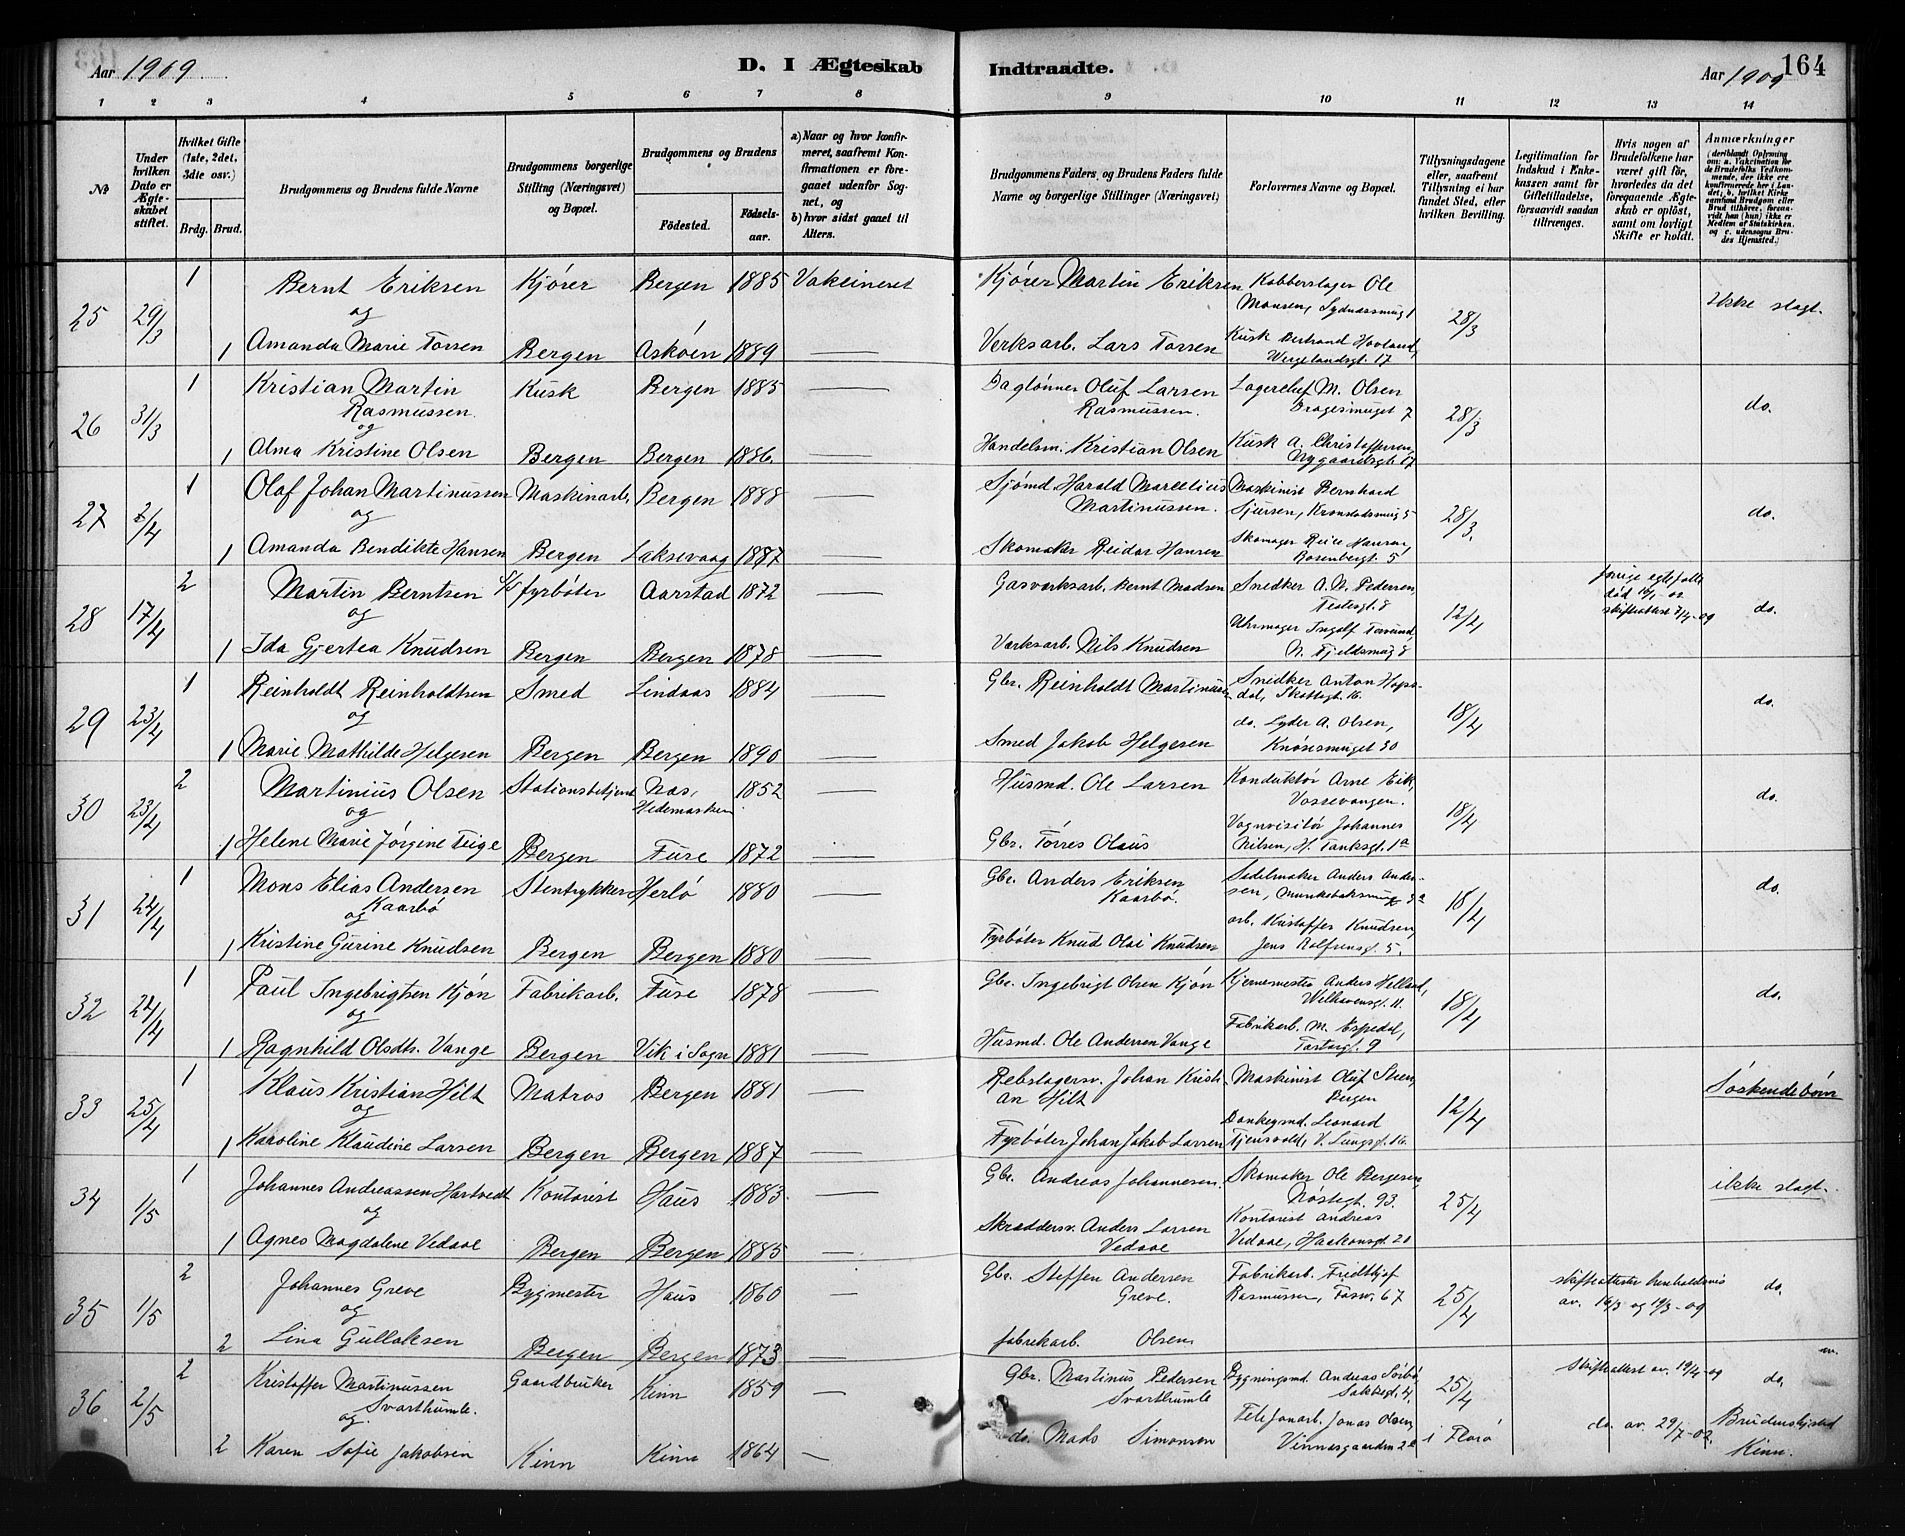 Aar 1909
D. I Ægteskab Indtraadte.
Aar 1909
164
1 2 3 4 5 6 7 8 9 10 11 12 13 14
No
Under hvilken Dato er Ægteskabet stiftet.
Hvilket Gifte (1ste, 2det, 3die osv.)
Brdg. Brud.
Brudgommens og Brudens fulde Navne
Brudgommens borgerlige Stilling (Næringsvei) og Bopæl.
Brudgommens og Brudens
Fødested.
Fødselsaar.
a) Naar og hvor konfirmeret, saafremt Konfirmationen er foregaaet udenfor Sognet, og
b) hvor sidst gaaet til Alters.
Brudgommens Faders, og Brudens Faders fulde Navne og borgerlige Stillinger (Næringsvei)
Forlovernes Navne og Bopæl.
Tillysningsdagene eller, saafremt Tillysning ei har fundet Sted, efter hvilken Bevilling.
Legitimation for Indskud i Enkekassen samt for Giftetilladelse, forsaavidt saadan tiltrænges.
Hvis nogen af Brudefolkene har været gift før, hvorledes da det foregaaende Ægteskab er opløst, samt om lovligt Skifte er holdt.
Anmærkninger
25 29/3 1 Bernt Eriksen Kjører Bergen 1885 Vakcineret Kjører Martin Eriksen Kobberslager Ole
og Monsen, Sydnæssmug 1 28/3 Ikke slagt.
1 Amanda Marie Torsen Bergen Askøen 1889 Verksarb. Lars Torsen Kusk Bertrand Hovland,
Wergelandsgt. 17
26 31/3 1 Kristian Martin Kusk Bergen 1885 Daglønner Oluf Larsen Lagerchef M. Olsen
Rasmussen Rasmussen. Dragesmuget 7 28/3 do.
og
1 Alma Kristine Olsen Bergen Bergen 1886. Handelsm. Kristian Olsen Kusk A. Christoffersen
Nygaardsgt. 17
27 2/4 1 Olaf Johan Martinussen Maskinarb. Bergen 1888 Sjømd. Harald Marcelius Maskinist Bernhard
og Martinussen. Sjursen, Kronstadsmug 5 28/3. do.
1 Amanda Bendikte Hansen Bergen Laksevaag 1887 Skomaker Reidar Hansen Skomager
Rosenbergt. 5
28 17/4 2 Martin Berntsen fyrbøter Aarstad 1872 Gasverksarb. Bernt Madsen Snedker A. N. Pedersen
og Teatergt. 8 12/4 forrige egtefælle
død skifteattest 7/4-09 do.
1 Ida Gjertea Knudsen Bergen Bergen 1878 Værksarb. Nils Knudsen Uhrmager Ingolf
N. Fjeldsmug 8
29 23/4 1 Reinholdt Reinholdtsen Smed Lindaas 1884 Gbr. Reinholdt Snedker Anton Hops-
og dal, Skottegt. 16 18/4 do.
1 Marie Mathilde Helgesen Bergen Bergen 1890 Smed Jakob Helgesen do. Lyder A. Olsen,
Knøsesmuget 30
30 23/4 2 Martinius Olsen Stationsbetjent Næs, 1852 Husmd. Ole Larsen Konduktør Arne Eik,
og Hedemarken Vossevangen. 18/4 do.
1 Helene Marie Jørgine Teige Bergen Fuse 1872 Gbr. Torres Olaus Vognvisitør Johannes
Nilsen, H. Tanksgt. 1a
31 24/4 1 Mons Elias Andersen Stentrykker Herlø 1880 Gbr. Anders Eriksen Sedelmaker Anders Ander-
Kaarbø Kaarbø. sen, 18/4 do.
og
1 Kristine Gurine Knudsen Bergen Bergen 1880 Fyrbøter Knud Olai Knudsen arb. Kristoffer Knudsen,
Jens Rolfsensgt. 5.
32 24/4 1 Paul Ingebrigtsen Kjøn Fabrikarb. Fuse 1878 Gbr. Ingebrigt Olsen Kjøn Kjernemester Anders Helland,
og Welhavensgt. 11. 18/4 do.
1 Ragnhild Olsdtr. Vange Bergen Vik i Sogn 1881 Husmd. Ole Andersen Vange Fabrikarb. M. Espedal,
9
33 25/4 1 Klaus Kristian Hilt Matros Bergen 1881 Rebslagersv. Johan Kristi- Maskinist Oluf
og an Hilt Bergen 12/4 Søskendebørn
1 Karoline Klaudine Larsen Bergen Bergen 1887 Fyrbøter Johan Jakob Larsen Leonard
Tjensvold, V. Lungsgt. 16.
34 1/5 1 Johannes Andreassen Hartvedt Kontorist Haus 1883 Gbr. Andreas Johannesen. Skomaker Ole Bergesen,
og Nøstegt. 93. 25/4 ikke slagt.
1 Agnes Magdalene Vedaae Bergen Bergen 1885 Skræddersv. Anders Larsen Kontorist Andreas
Vedaae Vedaae, Haakonsgt. 20
35 1/5 2 Johannes Greve Bygmester Haus 1860 Gbr. Steffen Andersen Fabrikarb. Fridthjof
og Greve. Rasmussen, 67 25/4 skifteattester henholdsvis
av. 16/3 og 19/3-09 do.
2 Lina Gullaksen Bergen Bergen 1873 fabrikarb. Olsen
36 2/5 2 Kristoffer Martinussen Gaardbruker Kinn 1859 Gbr. Martinus Pedersen Bygningsmd. Andreas Sørbø,
Svarthumle. Svarthumle 25/4 Skifteattest av. 19/4-09 do.
og
2 Karen Sofie Jakobsen Kinn Kinn 1864 do. Mads Simonsen Telefonarb. Jonas Olsen,
i Florø do av. 29/7-02. Brudens hjsted
Kinn.